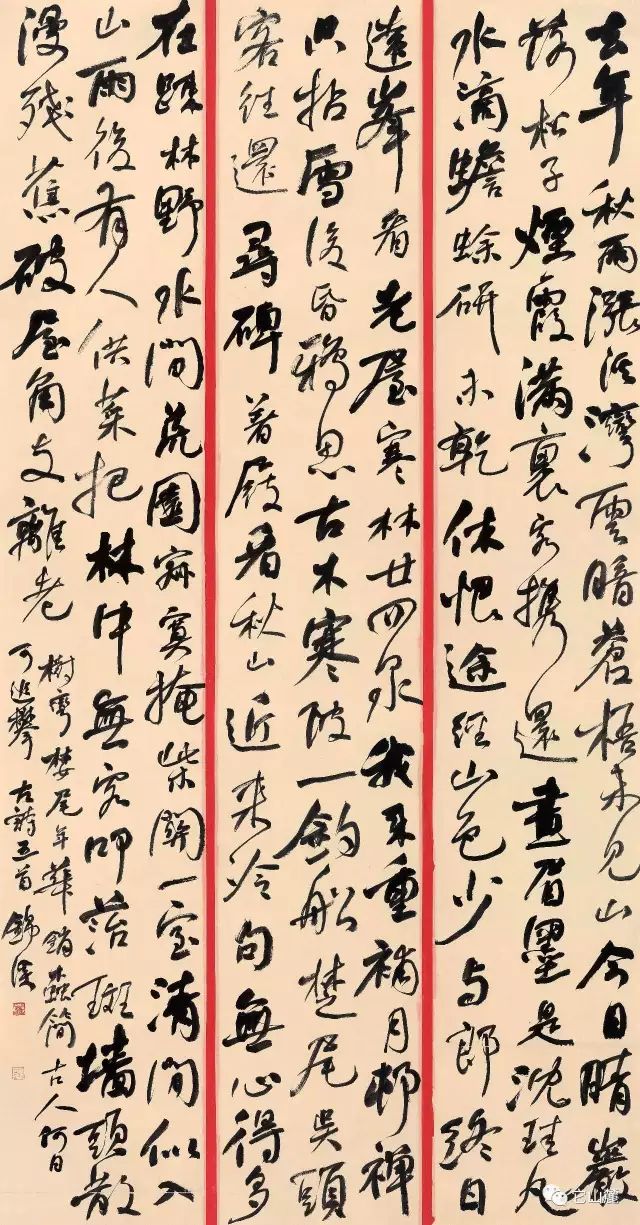 去年秋雨漲溪灣雲暗蒼梧未見山今日晴巖
拾松子煙霞滿裹客攜還畫眉墨是沈珪丸
水滴蟾蜍研未乾休恨途經山色少与郎終日
遠峯看老屋寒林廿四泉我來重補月邨禪
只拈雪後昏鴉思古木寒陂一釣船楚尾吳頭
客往還尋碑著屐看秋山近来冷句無心得多
在疎林野水間荒園寂寞掩柴關一室清閒似入
山雨後有人供菜把林中無客叩苔斑墻頭散
漫殘蕉破屋角支離老
樹彎婪尾年華銷蠹簡古人何日
可追攀 古詩五首 錦
它山